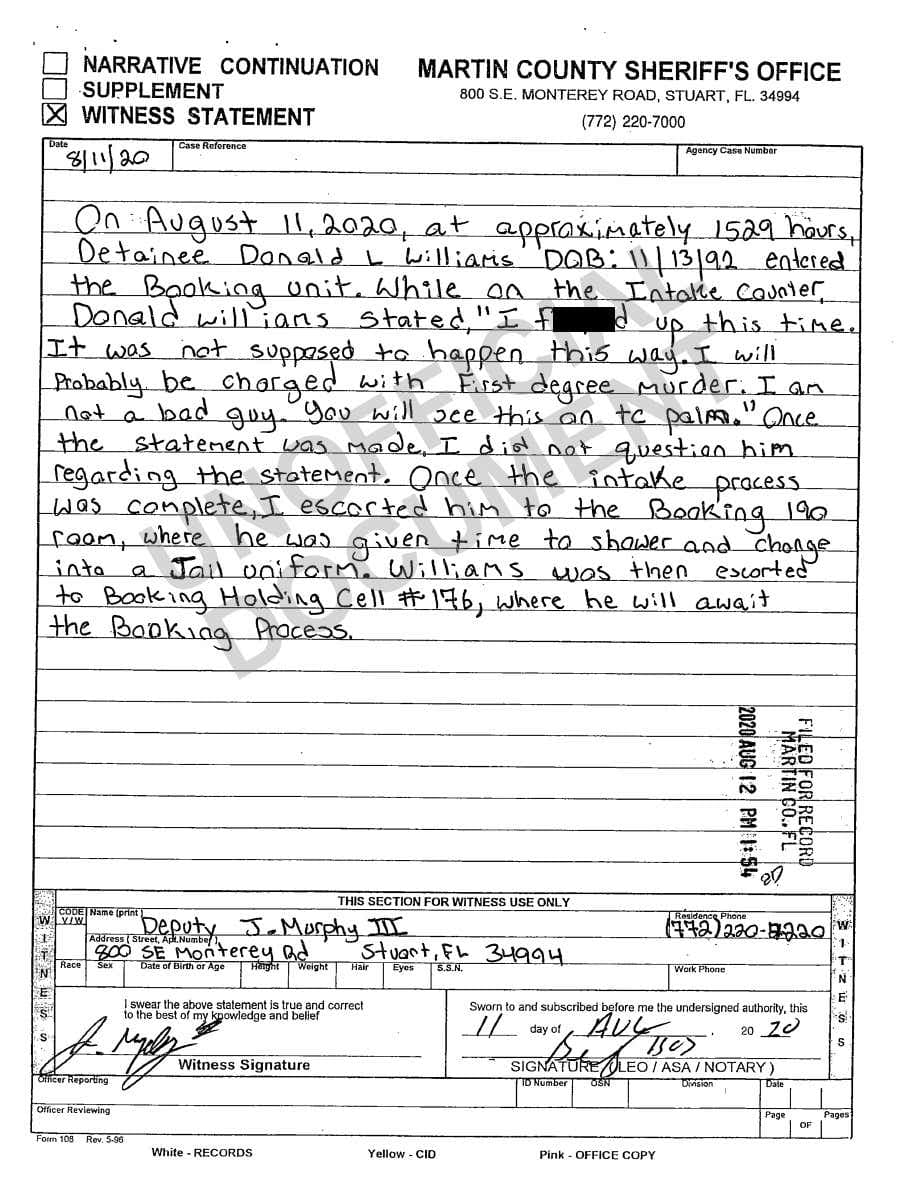 NARRATIVE CONTINUATION
SUPPLEMENT
WITNESS STATEMENT
MARTIN COUNTY SHERIFF'S OFFICE
800 S.E. MONTEREY ROAD, STUART, FL. 34994
(772) 220-7000
Date
8/11/20
Case Reference
Agency Case Number
On August 11, 2020, at approximately 1529 hours,
Detainee Donald L Williams DOB: 11/13/92 entered
the Booking unit. While on the Intake counter,
Donald Willians stated, "I f d up this time.
It was not supposed to happen this way. I will
Probably be charged with First degree murder. I am
not a bad guy. You will see this on tc palm." Once
the statement was made, I did not question him
regarding the statement. Once the intake process
was complete, I escorted him to the Booking 190
room, where he was given time to shower and change
into a Jail uniform. Williams was then escorted
to Booking Holding Cell #176, where he will await
the Booking Process.
UNOFFICIAL
DOCUMENT
FILED FOR RECORD
MARTIN CO., FL
2020 AUG 12 PM 1:54
THIS SECTION FOR WITNESS USE ONLY
WITNESS
CODE
V / W
Name (print)
Deputy J. Murphy III
Residence Phone
(772) 220-7220
Address ( Street, Apt.Number )
800 SE Monterey Rd Stuart, FL 34994
Race
Sex
Date of Birth or Age
Height
Weight
Hair
Eyes
S.S.N.
Work Phone
WITNESS
I swear the above statement is true and correct
to the best of my knowledge and belief
Witness Signature
Sworn to and subscribed before me the undersigned authority, this
11 day of AUG , 20 20
SIGNATURE (LEO / ASA / NOTARY )
Officer Reporting
ID Number
OSN
Division
Date
Officer Reviewing
Page
OF
Pages
Form 108 Rev. 5-96
White - RECORDS
Yellow - CID
Pink - OFFICE COPY